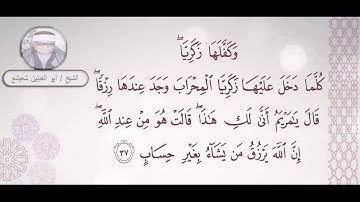 الشيخ / أبو العينين شعيشع
وَكَفَّلَهَا زَكَرِيَّا ۖ
كُلَّمَا دَخَلَ عَلَيْهَا زَكَرِيَّا الْمِحْرَابَ وَجَدَ عِندَهَا رِزْقًا ۖ
قَالَ يَٰمَرْيَمُ أَنَّىٰ لَكِ هَٰذَا ۖ قَالَتْ هُوَ مِنْ عِندِ اللَّهِ ۖ
إِنَّ اللَّهَ يَرْزُقُ مَن يَشَآءُ بِغَيْرِ حِسَابٍ ٣٧